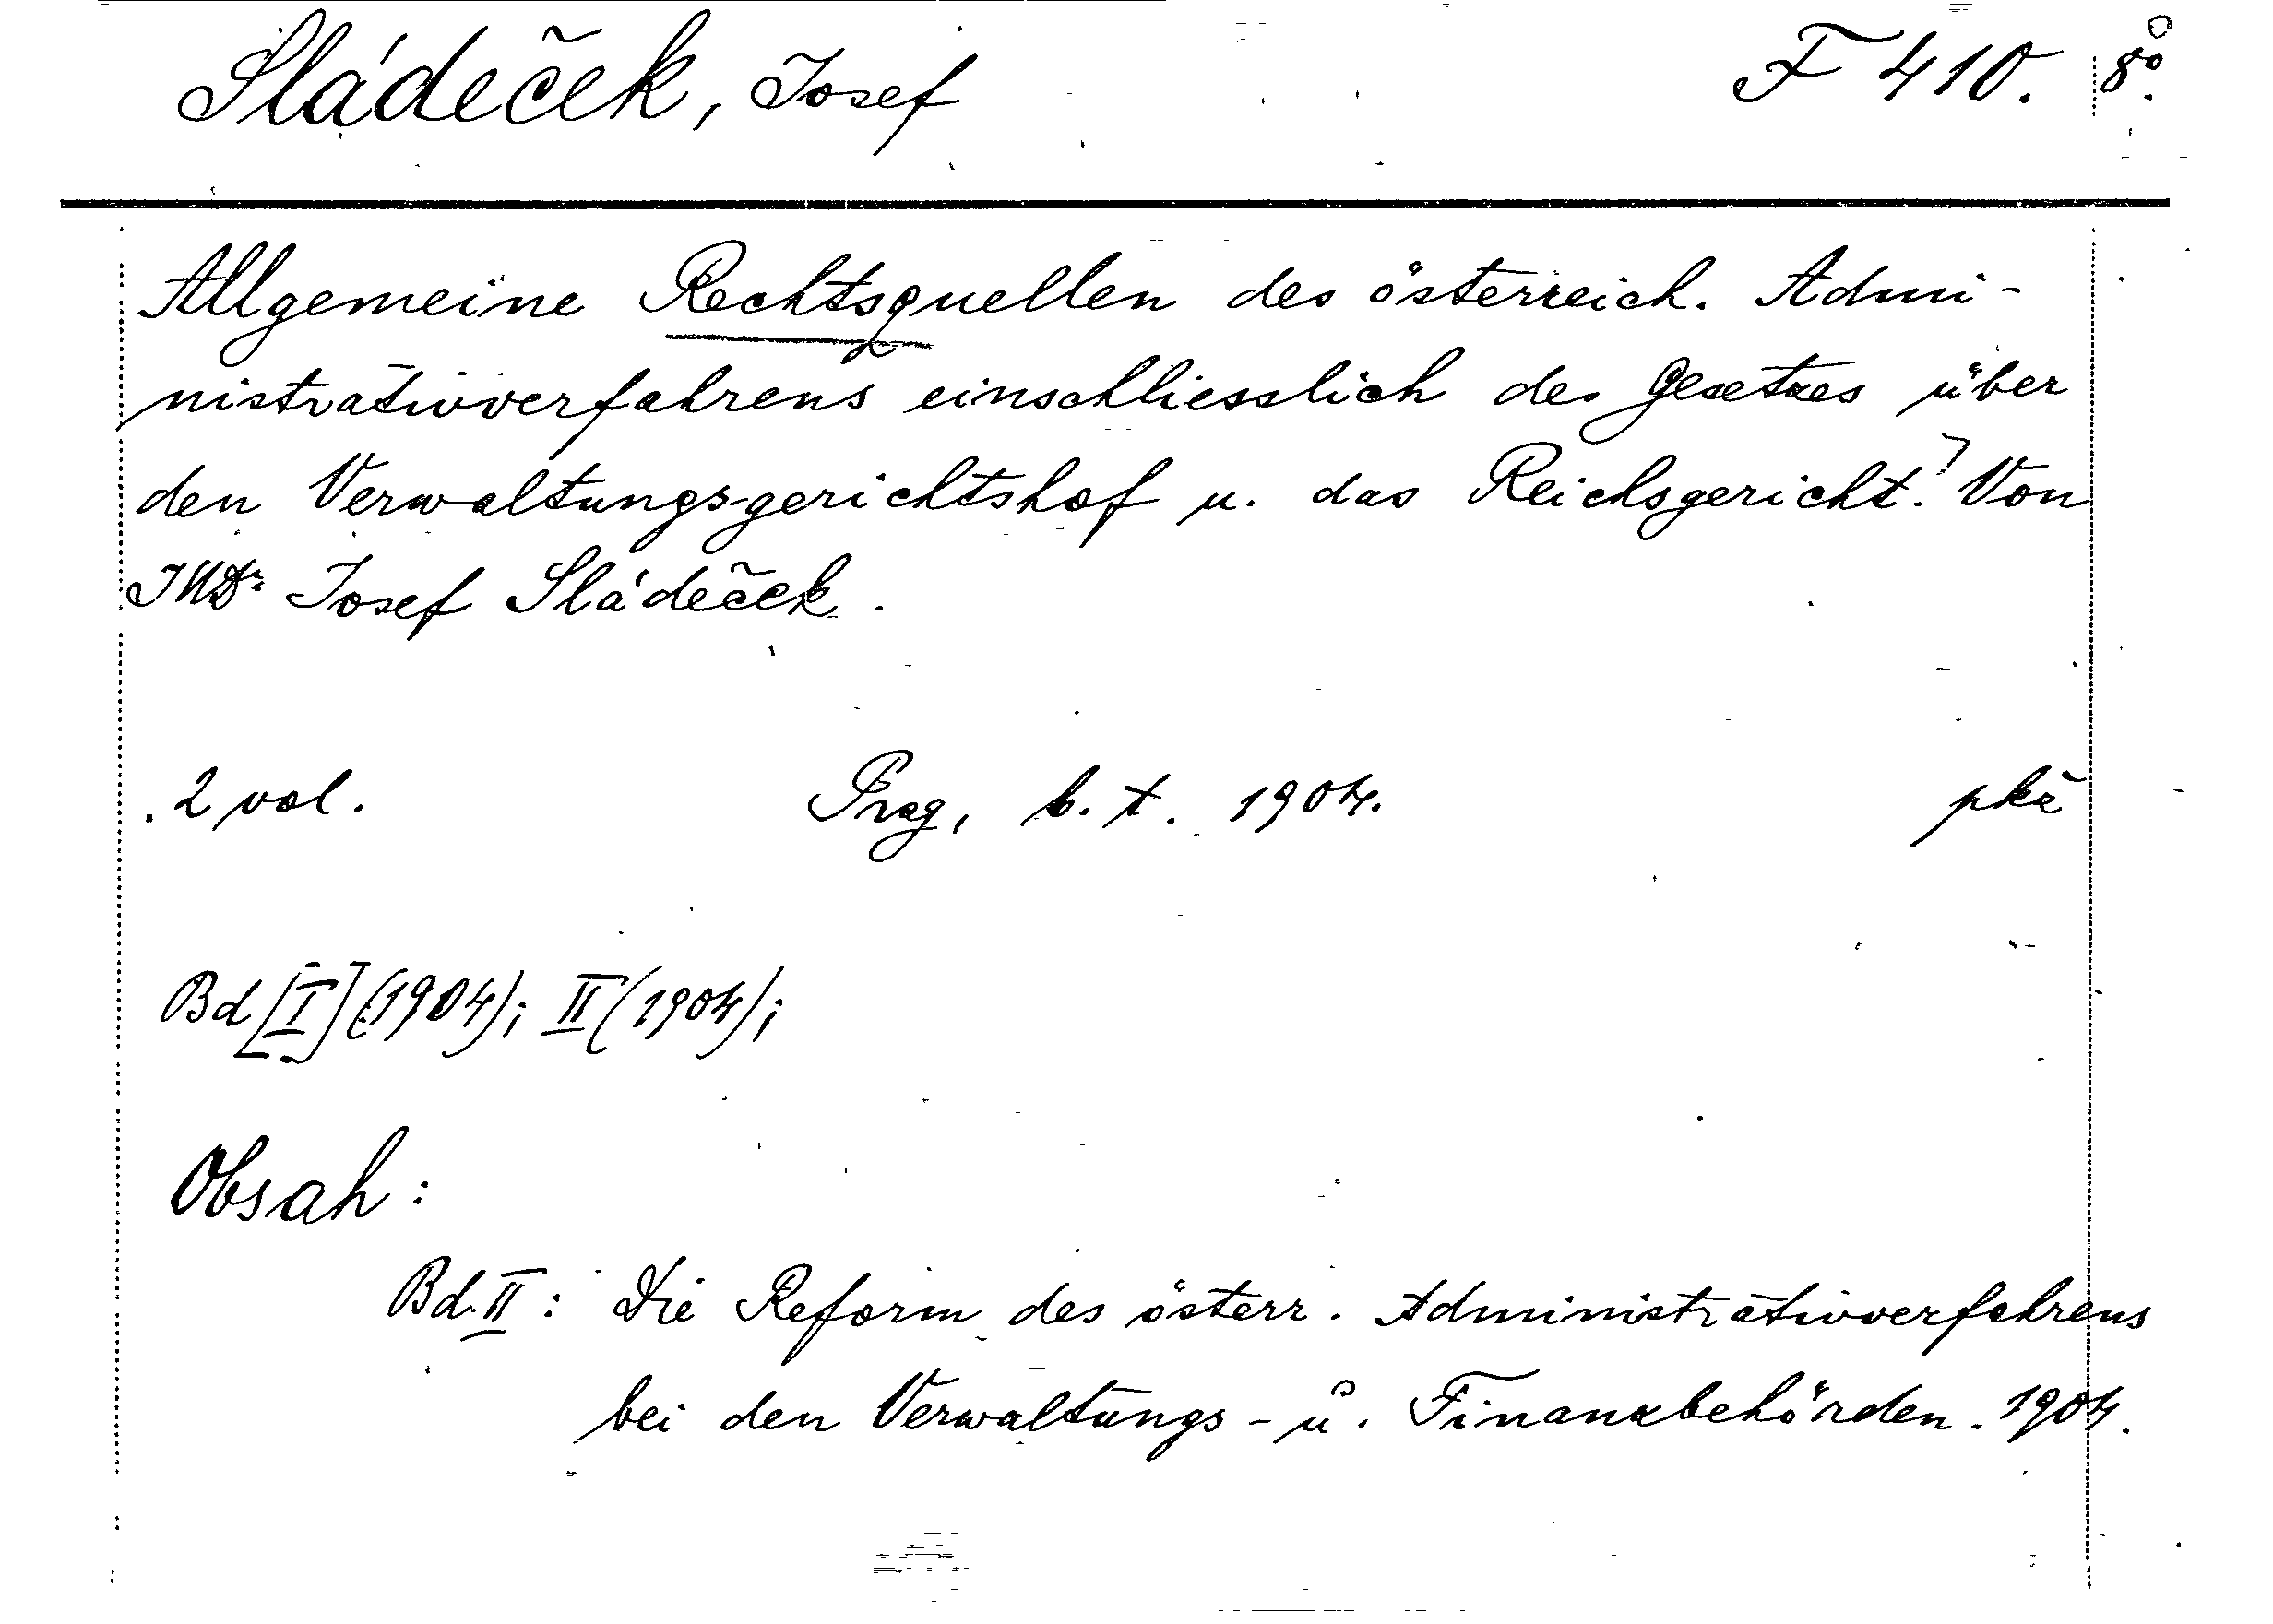 Sládeček, Josef F 410. 8º.
Allgemeine Rechtsquellen des österreich. Admi-
nistrativverfahrens einschliesslich des Gesetzes über
den Verwaltungsgerichtshof u. das Reichsgericht. Von
JUDr Josef Sládeček.
2 vol. Prag, b. t. 1904. pkž
Bd [I] (1904); II (1904);
Obsah:
Bd. II: Die Reform des österr. Administrativverfahrens
bei den Verwaltungs- u. Finanzbehörden. 1904.